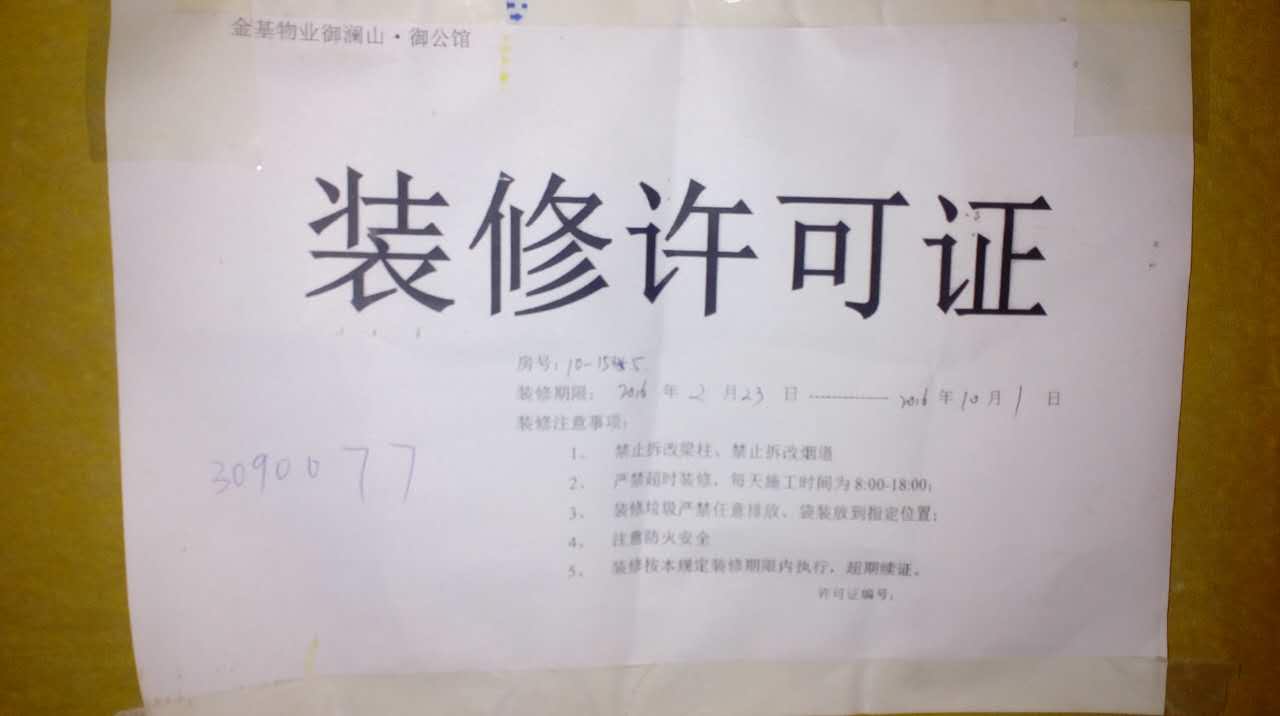 金基物业御澜山·御公馆
装修许可证
房号：
装修期限： 2016 年 2 月 23 日 ------------- 2016 年 10 月 1 日
装修注意事项：
1、 禁止拆改梁柱、禁止拆改烟道
2、 严禁超时装修，每天施工时间为 8:00-18:00；
3、 装修垃圾严禁任意排放、袋装放到指定位置；
4、 注意防火安全
5、 装修按本规定装修期限内执行，超期续证。
许可证编号：
3090077